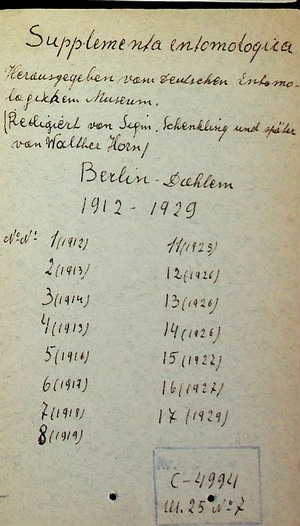 Supplementa entomologica
Herausgegeben vom Deutschen Entomo-
logischem Museum.
(Redigiert von Sigm. Schenkling und später
von Walther Horn)
Berlin-Dahlem
1912 - 1929
№№ 1 (1912)
2 (1913)
3 (1914)
4 (1915)
5 (1916)
6 (1917)
7 (1918)
8 (1919)
11 (1925)
12 (1926)
13 (1926)
14 (1926)
15 (1927)
16 (1927)
17 (1929)
Nr.
C-4994
Ш. 25 № 7